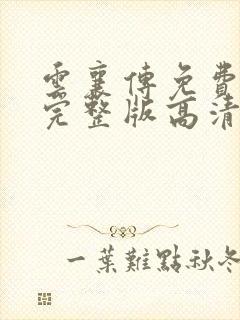 雲襄傳免費
完整版高清
一葉難點秋冬